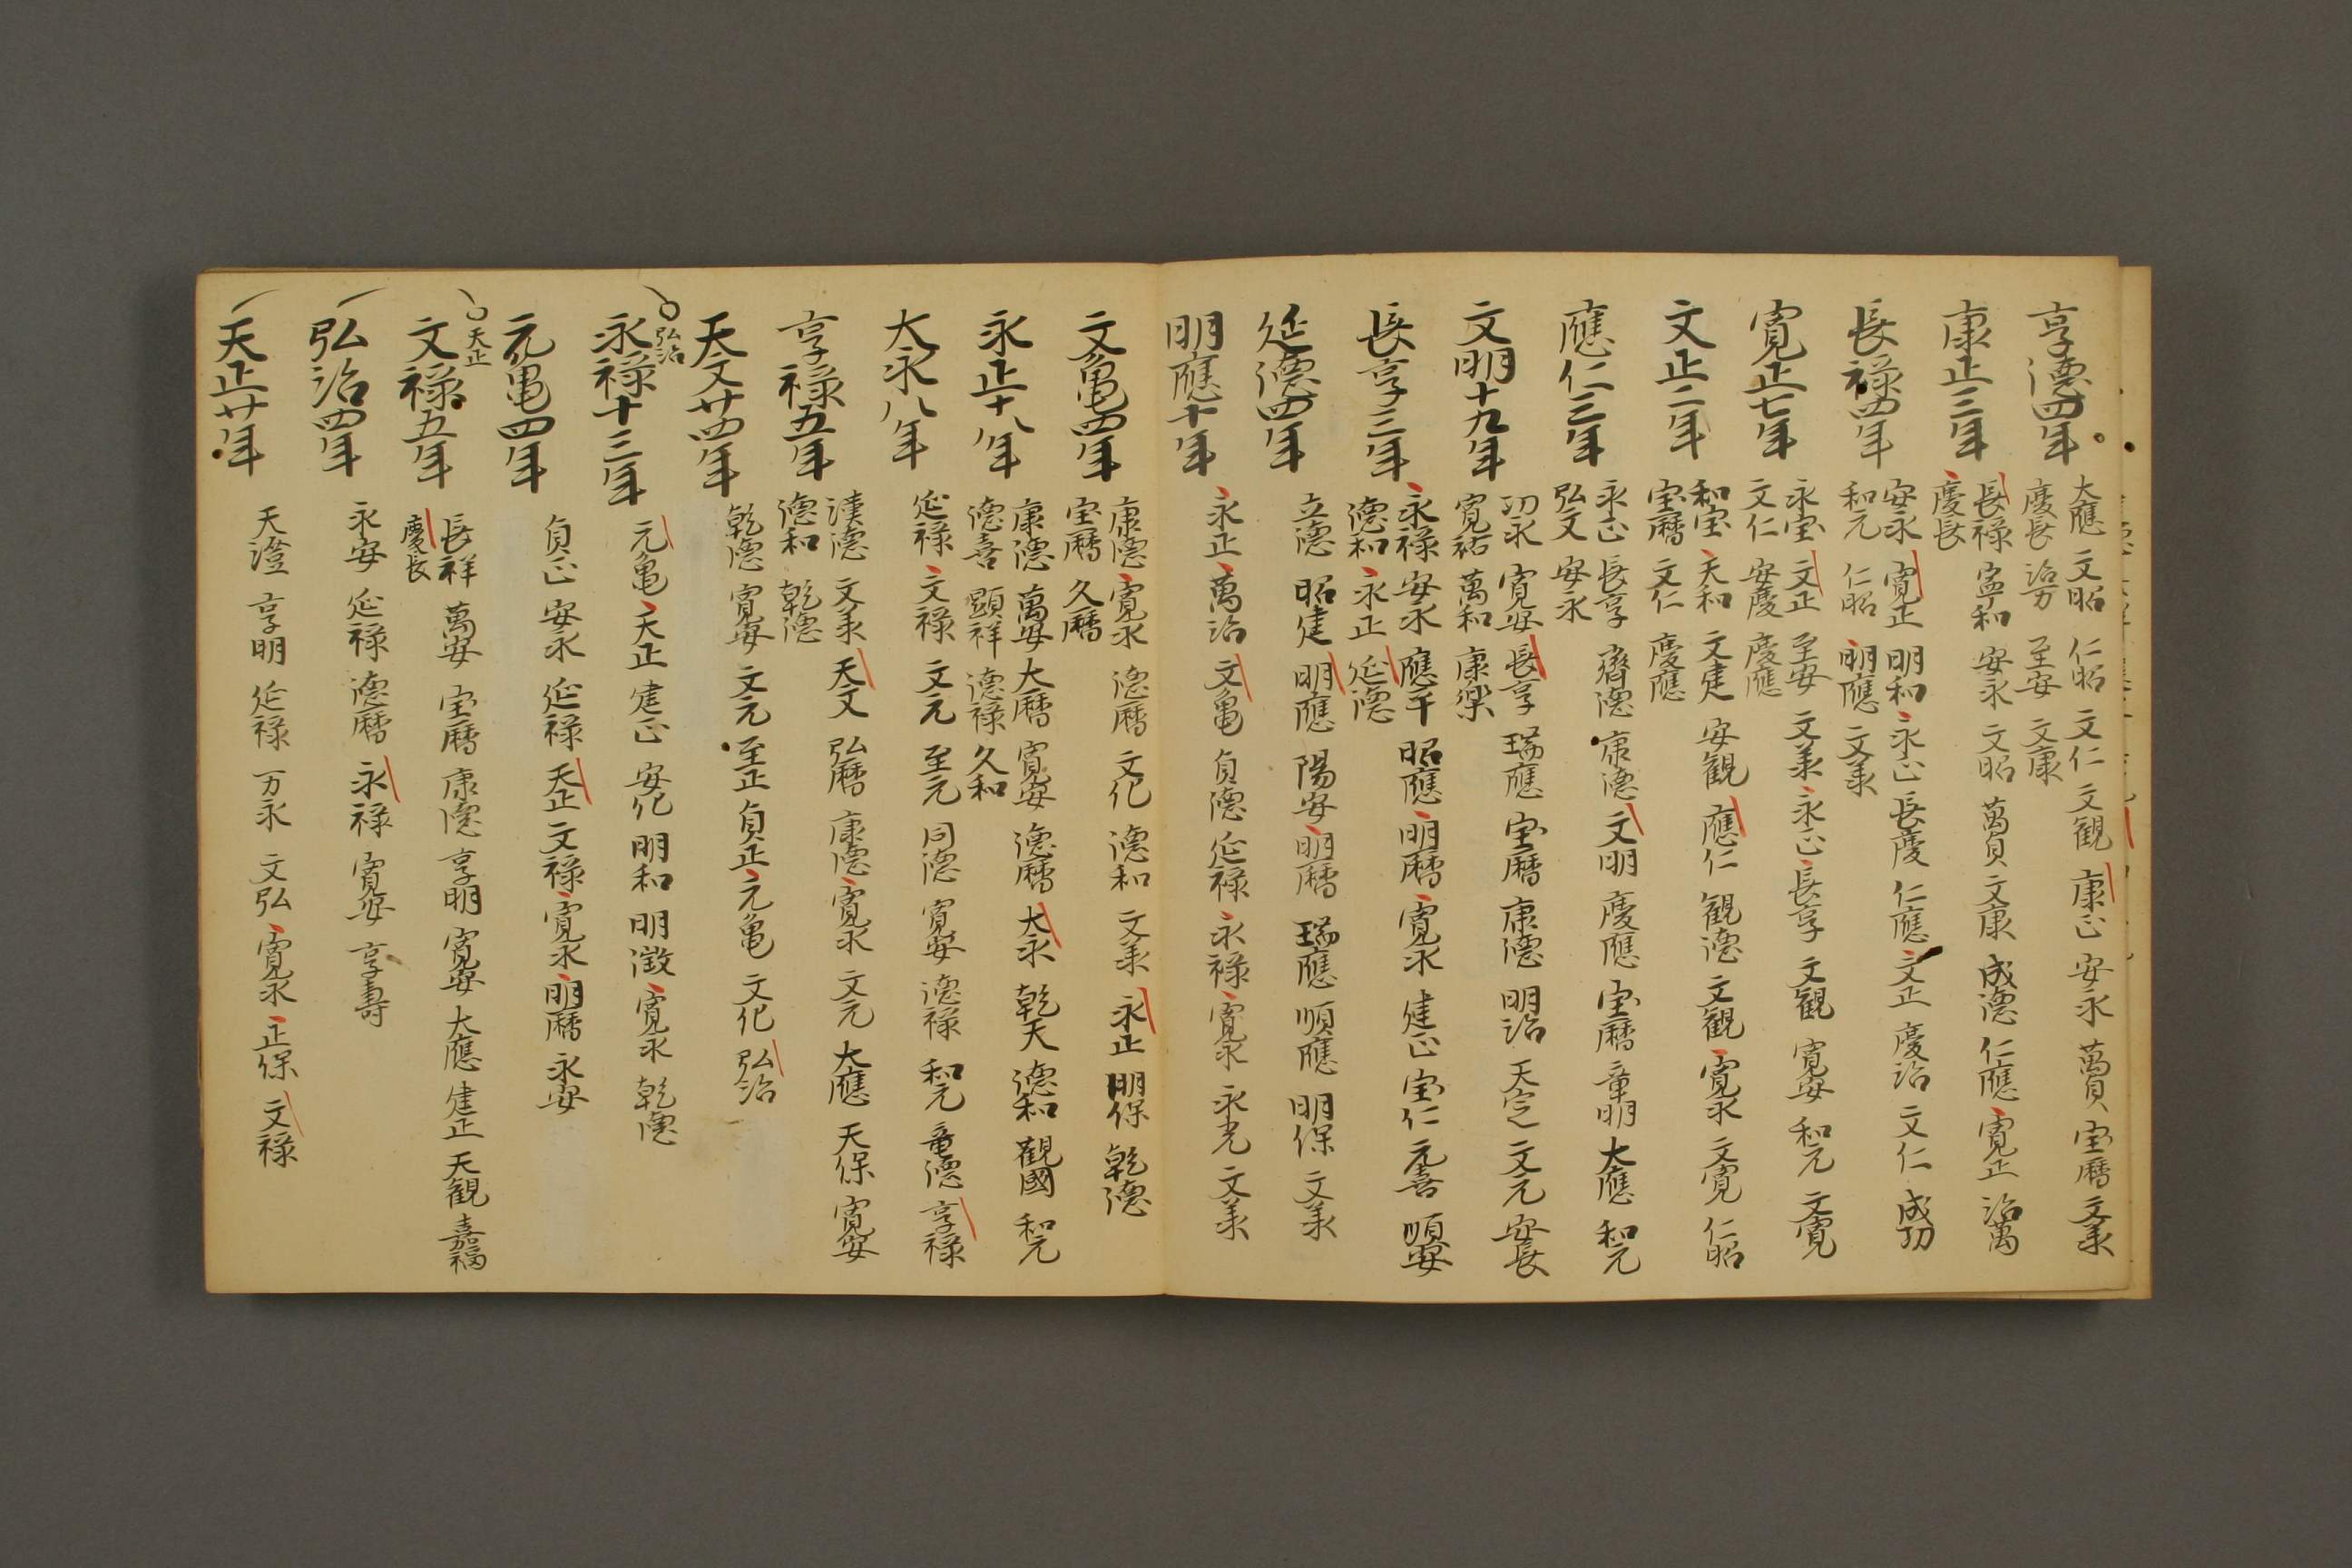 享德四年
大應 文昭 仁昭 文仁 文観 康正 安永 萬貞 宝暦 文承
慶長 治万 至安 文康
康正三年
長禄 寧和 安永 文昭 萬貞 文康 成德 仁應 寛正 治萬
慶長
長禄四年
安永 寛正 明和 永正 長慶 仁應 文正 慶治 文仁 成功
和元 仁昭 明應 文承
寛正七年
永宝 文正 至安 文承 永正 長享 文観 寛安 和元 文寛
文仁 安慶 慶應
文正二年
和宝 天和 文建 安観 應仁 観德 文観 寛永 文寛 仁昭
宝暦 文仁 慶應
應仁三年
永正 長享 齊德 康德 文明 慶應 宝暦 章明 大應 和元
弘文 安永
文明十九年
功永 寛安 長享 瑞應 宝暦 康德 明治 天定 文元 安長
寛祐 萬和 康楽
長享三年
永禄 安永 應平 昭應 明暦 寛永 建正 宝仁 元喜 順安
德和 永正 延德
延德四年
立德 昭建 明應 陽安 明暦 瑞應 順應 明保 文承
明應十年
永正 萬治 文亀 貞德 延禄 永禄 寛永 永光 文承
文亀四年
康德 寛永 德暦 文化 德和 文承 永正 明保 乾德
宝暦 久暦
永正十八年
康德 萬安 大暦 寛安 德暦 大永 乾天 德和 観國 和元
德喜 顕祥 德禄 久和
大永八年
延禄 文禄 文元 至元 同德 寛安 德禄 和元 竜德 享禄
享禄五年
漢德 文承 天文 弘暦 康德 寛永 文元 大應 天保 寛安
德和 乾德
天文廿四年
乾德 寛安 文元 至正 貞正 元亀 文化 弘治
弘治
永禄十三年
元亀 天正 建正 安化 明和 明徴 寛永 乾德
元亀四年
貞正 安永 延禄 天正 文禄 寛永 明暦 永安
天正
文禄五年
長祥 萬安 宝暦 康德 享明 寛安 大應 建正 天観 嘉福
慶長
弘治四年
永安 延禄 德暦 永禄 寛安 享寿
天正廿年
天澄 享明 延禄 万永 文弘 寛永 正保 文禄